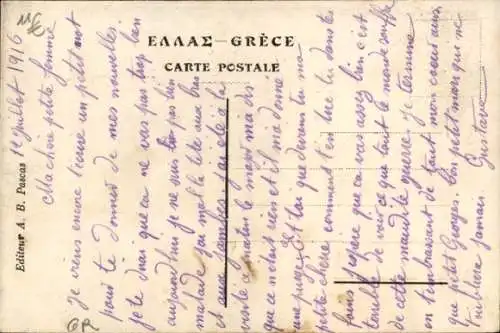 11€
ΕΛΛΑΣ – GRÈCE
CARTE POSTALE
Editeur A. B. Pascas
1 juillet 1916
Ma chère petite femme
je viens encore t'écrire un petit mot
pour te donner de mes nouvelles
je te dirai que ça ne va pas trop bien
aujourd'hui je ne suis pas bien
malade j'ai mal la tête aux bras
et aux jambes j'ai été à la
visite ce matin le major m'a dis
que ce n'était rien et il m'a donné
une purge. Et toi que deviens tu ma
petite chère comment t'en
j'espère que ça va assez bien c'est
terrible de voir ce que tout le monde souffre
de cette maudite guerre je termine
en t'embrassant de tout mon coeur ainsi
que petit Georges. Ton petit mari qui ne
t'oubliera jamais Gustave
GR